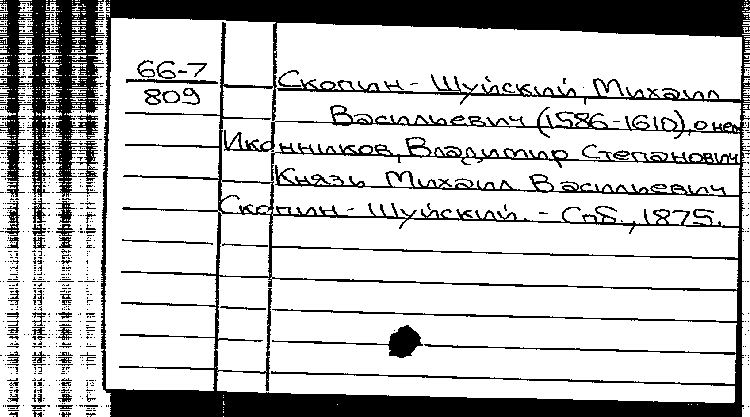 66-7
809
Скопин-Шуйский, Михаил
Васильевич (1586-1610), о нем
Иконников, Владимир Степанович
Князь Михаил Васильевич
Скопин-Шуйский. - Спб., 1875.